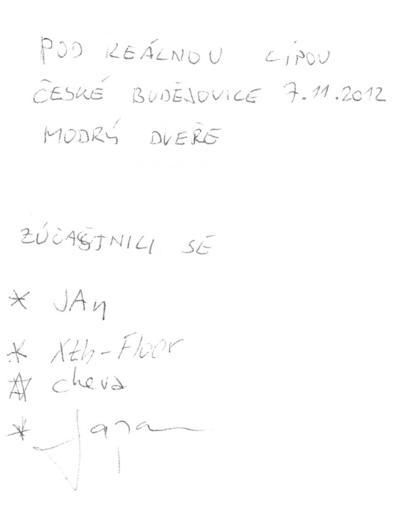 POD REÁLNOU LÍPOU
ČESKÉ BUDĚJOVICE 7.11.2012
MODRÝ DVEŘE
ZÚČASTNILI SE
* JAn
* Xth-Floor
* cheva
*